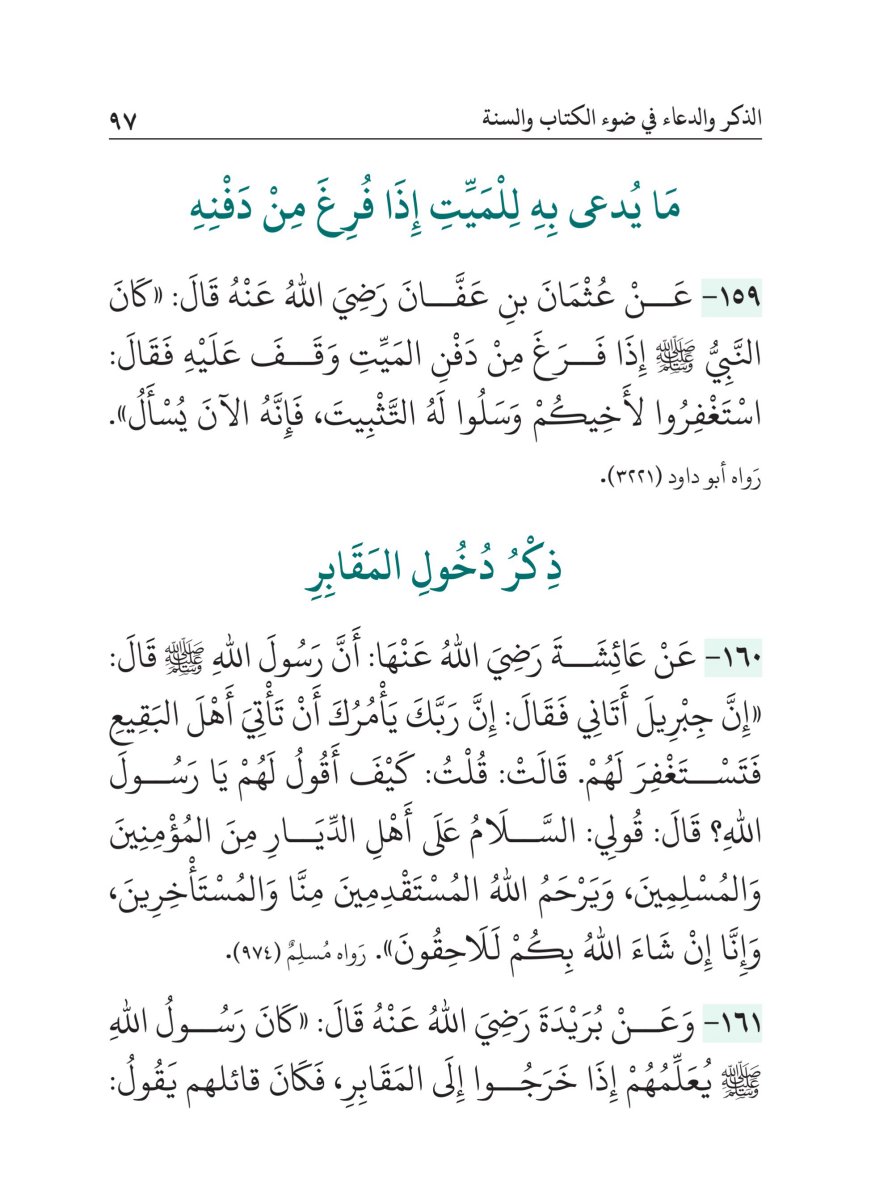 الذكر والدعاء في ضوء الكتاب والسنة ٩٧
مَا يُدعى بِهِ لِلْمَيِّتِ إِذَا فُرِغَ مِنْ دَفْنِهِ
١٥٩- عَـــنْ عُثْمَانَ بنِ عَفَّـــانَ رَضِيَ اللهُ عَنْهُ قَالَ: «كَانَ
النَّبِيُّ ﷺ إِذَا فَـــرَغَ مِنْ دَفْنِ المَيِّتِ وَقَـــفَ عَلَيْهِ فَقَالَ:
اسْتَغْفِرُوا لأَخِيكُمْ وَسَلُوا لَهُ التَّثْبِيتَ، فَإِنَّهُ الآنَ يُسْأَلُ».
رَواه أبو داود (٣٢٢١).
ذِكْرُ دُخُولِ المَقَابِرِ
١٦٠- عَنْ عَائِشَـــةَ رَضِيَ اللهُ عَنْهَا: أَنَّ رَسُولَ اللهِ ﷺ قَالَ:
«إِنَّ جِبْرِيلَ أَتَانِي فَقَالَ: إِنَّ رَبَّكَ يَأْمُرُكَ أَنْ تَأْتِيَ أَهْلَ البَقِيعِ
فَتَسْـــتَغْفِرَ لَهُمْ. قَالَتْ: قُلْتُ: كَيْفَ أَقُولُ لَهُمْ يَا رَسُـــولَ
اللهِ؟ قَالَ: قُولِي: السَّـــلَامُ عَلَى أَهْلِ الدِّيَـــارِ مِنَ المُؤْمِنِينَ
وَالمُسْلِمِينَ، وَيَرْحَمُ اللهُ المُسْتَقْدِمِينَ مِنَّا وَالمُسْتَأْخِرِينَ،
وَإِنَّا إِنْ شَاءَ اللهُ بِكُمْ لَلَاحِقُونَ». رَواه مُسلِمٌ (٩٧٤).
١٦١- وَعَـــنْ بُرَيْدَةَ رَضِيَ اللهُ عَنْهُ قَالَ: «كَانَ رَسُـــولُ اللهِ
ﷺ يُعَلِّمُهُمْ إِذَا خَرَجُـــوا إِلَى المَقَابِرِ، فَكَانَ قائلهم يَقُولُ: